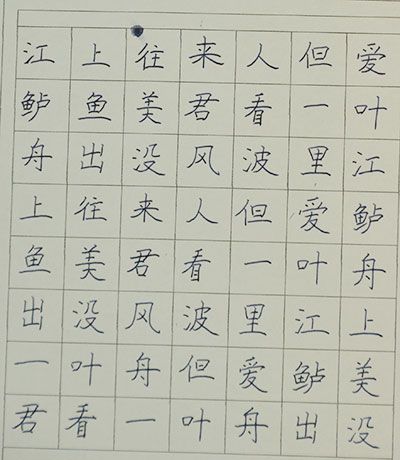 江上往来人但爱
鲈鱼美君看一叶
舟出没风波里江
上往来人但爱鲈
鱼美君看一叶舟
出没风波里江上
一叶舟但爱鲈美
君看一叶舟出没